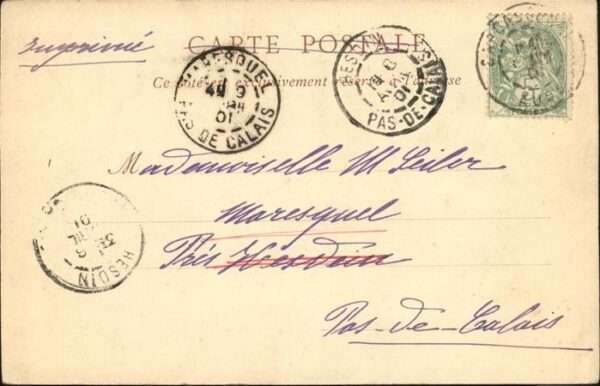 Imprimé
CARTE POSTALE
Ce côté est exclusivement réservé à l'adresse
MARESQUEL
8
01
PAS DE CALAIS
HESDIN
8
01
PAS-DE-CALAIS
Mademoiselle M Seiler
Maresquel
Près Hesdin
Pas-de-Calais
HESDIN
8
01